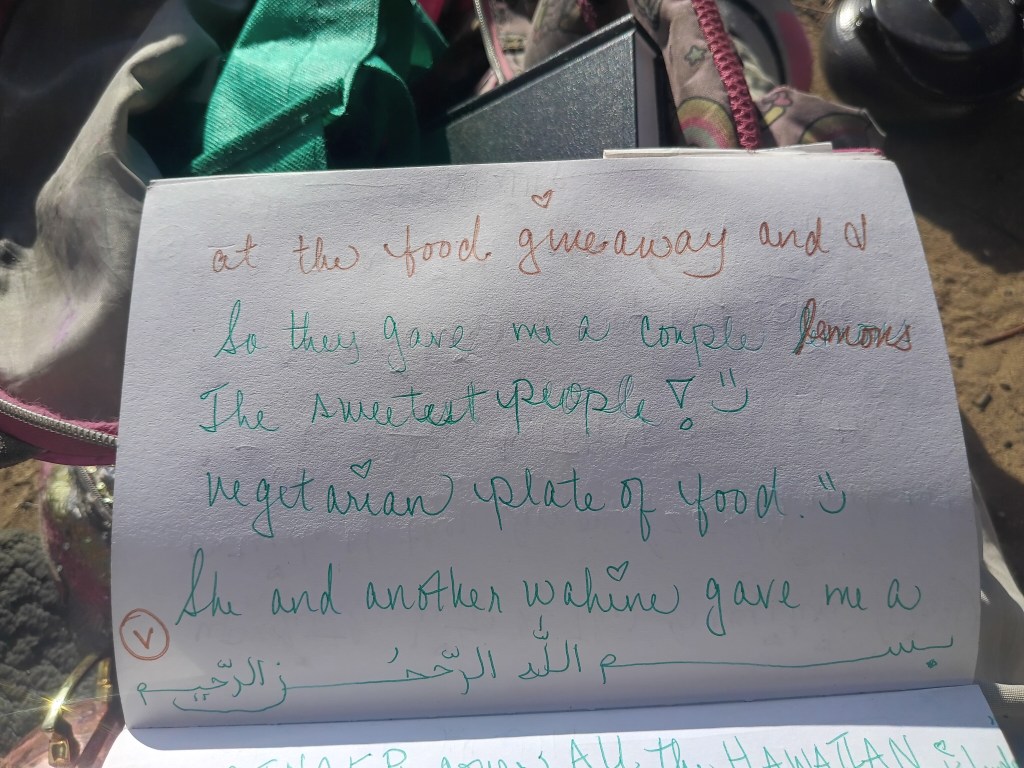 at the food giveaway and I
So they gave me a couple lemons
The sweetest people! :)
vegetarian plate of food. :)
She and another wahine gave me a
٧
بسم اللّٰه الرّحمٰن الرّحيم
All the HAWAIIAN